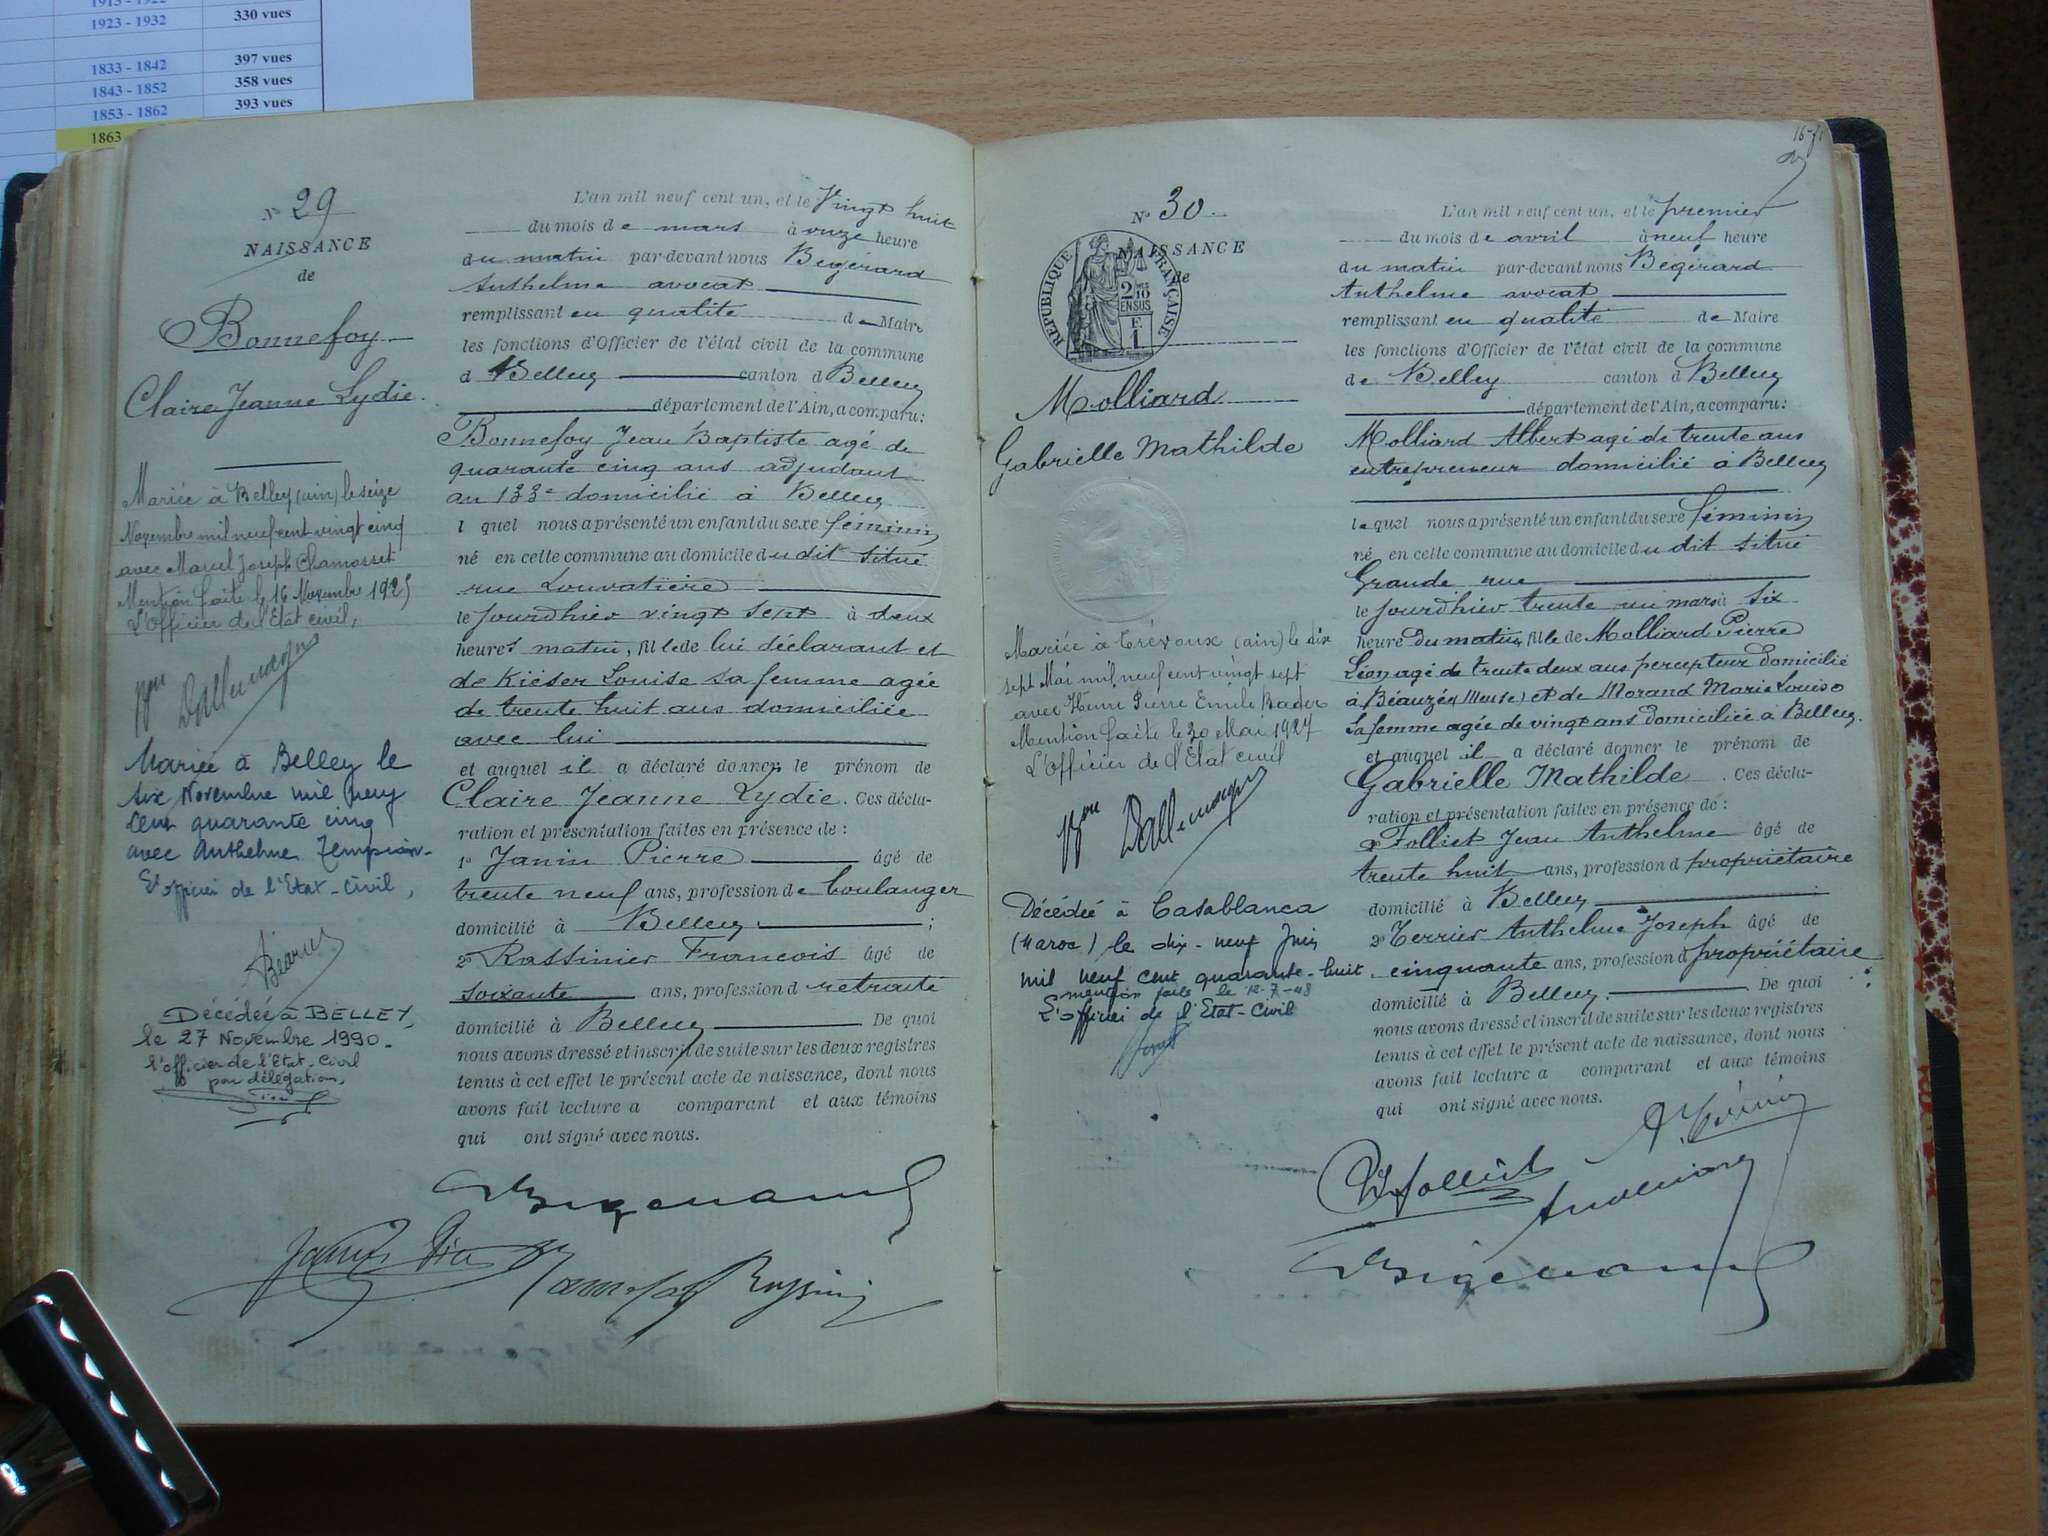 1923 - 1932 330 vues
1833 - 1842 397 vues
1843 - 1852 358 vues
1853 - 1862 393 vues
1863 -
N° 29
NAISSANCE
de
Bonnefoy
Claire Jeanne Lydie
Mariée à Belley (ain) le seize
Novembre mil neuf cent vingt cinq
avec Marcel Joseph Chamosset
Mention faite le 16 Novembre 1925
L'Officier de l'Etat civil,
Bon Dallemagne
Mariée à Belley le
six Novembre mil neuf
cent quarante cinq
avec Anthelme Tempion
L'officier de l'Etat-Civil,
Décédée à BELLEY,
le 27 Novembre 1990.
l'officier de l'Etat-Civil
par délégation,
L'an mil neuf cent un, et le Vingt huit
du mois de mars à onze heure
du matin par-devant nous Begérard
Anthelme avocat
remplissant en qualité de Maire
les fonctions d'Officier de l'état civil de la commune
d Belley canton d Belley
département de l'Ain, a comparu:
Bonnefoy Jean Baptiste agé de
quarante cinq ans adjudant
au 133e domicilié à Belley
l quel nous a présenté un enfant du sexe féminin
né en cette commune au domicile du dit situé
rue Louvatière
le jourdhier vingt sept à deux
heures matin, fille de lui déclarant et
de Kiéser Louise sa femme agée
de trente huit ans domiciliée
avec lui
et auquel il a déclaré donner le prénom de
Claire Jeanne Lydie. Ces décla-
ration et présentation faites en présence de:
1° Janin Pierre âgé de
trente neuf ans, profession de boulanger
domicilié à Belley ;
2° Rassinier Francois âgé de
soixante ans, profession d retraité
domicilié à Belley De quoi
nous avons dressé et inscrit de suite sur les deux registres
tenus à cet effet le présent acte de naissance, dont nous
avons fait lecture a comparant et aux témoins
qui ont signé avec nous.
N° 30
NAISSANCE
de
RÉPUBLIQUE FRANÇAISE
2/10
EN SUS
F.
1
Molliard
Gabrielle Mathilde
Mariée à Trévoux (ain) le dix
sept Mai mil neuf cent vingt sept
avec Henri Pierre Emile Bader
Mention faite le 20 Mai 1927
L'Officier de l'Etat civil
Bon Dallemagne
Décédée à Casablanca
(Maroc) le dix-neuf Juin
mil neuf cent quarante-huit.
mention faite le 12-7-48
L'officier de l'Etat-Civil
L'an mil neuf cent un, et le premier
du mois de avril à neuf heure
du matin par-devant nous Begérard
Anthelme avocat
remplissant en qualité de Maire
les fonctions d'Officier de l'état civil de la commune
de Belley canton d Belley
département de l'Ain, a comparu:
Molliard Albert agé de trente ans
entrepreneur domicilié à Belley
le quel nous a présenté un enfant du sexe féminin
né en cette commune au domicile du dit situé
Grande rue
le jourdhier trente un mars à six
heure du matin, fille de Molliard Pierre
Léon agé de trente deux ans percepteur domicilié
à Béauzée (Meuse) et de Morand Marie Louise
sa femme agée de vingt ans domiciliée à Belley.
et auquel il a déclaré donner le prénom de
Gabrielle Mathilde . Ces décla-
ration et présentation faites en présence de:
Folliet Jean Anthelme âgé de
trente huit ans, profession d propriétaire
domicilié à Belley
2° Terrier Anthelme Joseph âgé de
cinquante ans, profession d propriétaire
domicilié à Belley. De quoi
nous avons dressé et inscrit de suite sur les deux registres
tenus à cet effet le présent acte de naissance, dont nous
avons fait lecture a comparant et aux témoins
qui ont signé avec nous.